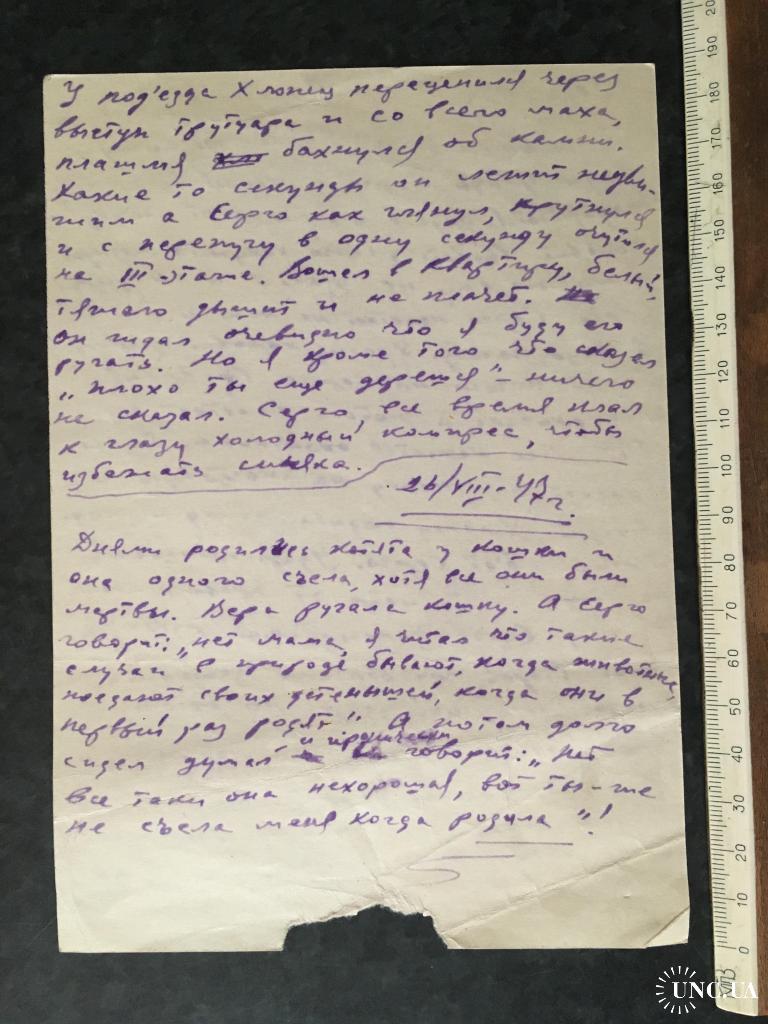 У под'езда Хлопец перецепился через
выступ тротуара и со всего маха,
плашмя бахнулся об камни.
Какие то секунды он лежит недви-
жим а Серго как глянул, крутнулся
и с перепугу в одну секунду очутился
на III этаже. Вошел в квартиру, белый,
тяжело дышит и не плачет.
он ждал очевидно что я буду его
ругать. Но я кроме того что сказал
„плохо ты еще дерешся" – ничего
не сказал. Серго, все время клал
к глазу холодный компрес, чтобы
избежать синяка.
26/VIII-47г.
Днями родились котята у кошки и
она одного съела, хотя все они были
мертвы. Вера ругала кошку. А Серго
говорит: „нет мама, я читал что такие
случаи в природе бывают, когда животные,
поедают своих детенышей, когда они в
первый раз родят". А потом долго
сидел думал и иронически говорит: „Нет
все таки она нехорошая, вот ты-же
не съела меня когда родила"!
200
190
180
170
160
150
140
130
120
110
100
90
80
70
60
50
40
30
20
10
0
UNC.UA